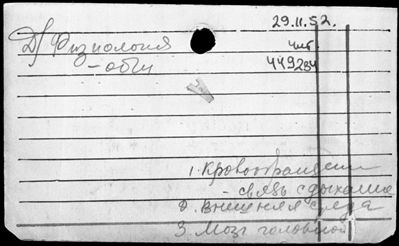 29.II.52.
Д/ Физиология
чит
– общ
449284
1. Кровообращение
– связь с дыхание
2. Внешняя среда
3. Мозг головной